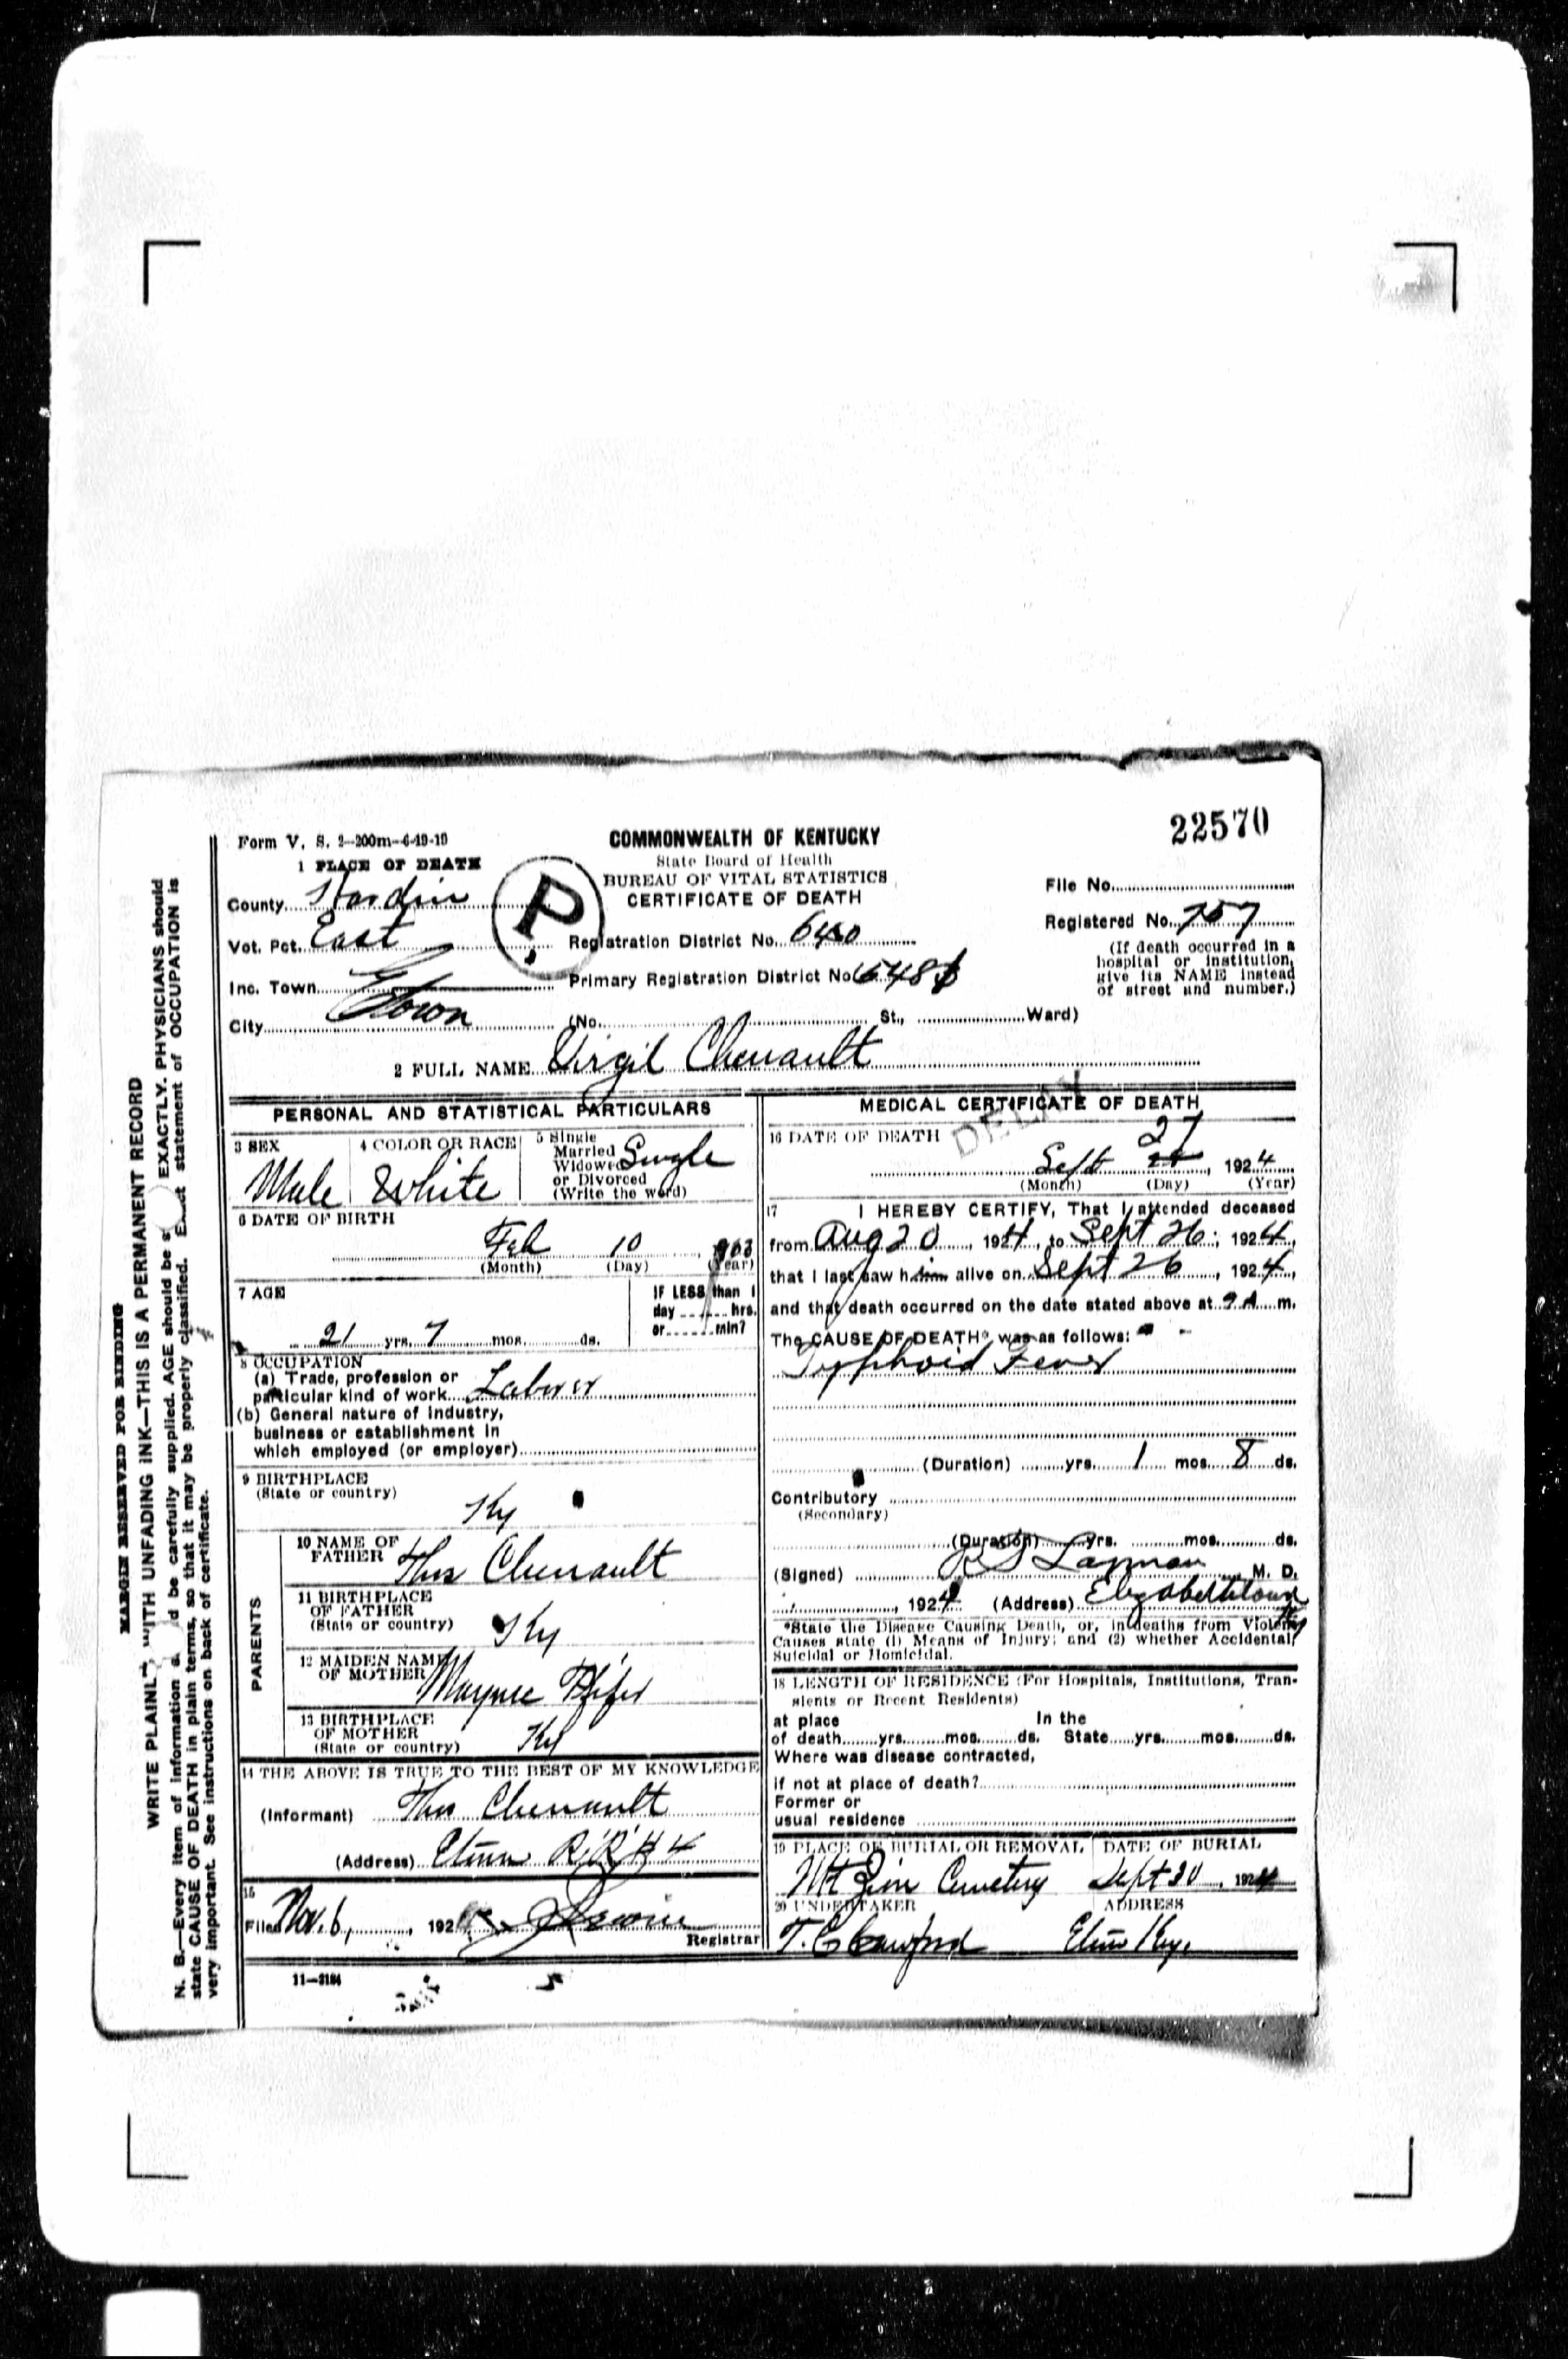 22570
Form V. S. 2-200m-6-19-19
COMMONWEALTH OF KENTUCKY
State Board of Health
BUREAU OF VITAL STATISTICS
CERTIFICATE OF DEATH
1 PLACE OF DEATH
P
County Hardin
Vot. Pct. East
Inc. Town
City Etown
File No.
Registered No. 757
(If death occurred in a
hospital or institution,
give its NAME instead
of street and number.)
Registration District No. 6480
Primary Registration District No.
(No. St., Ward)
2 FULL NAME Virgil Chenault
PERSONAL AND STATISTICAL PARTICULARS
3 SEX
Male
4 COLOR OR RACE
White
5 Single
Married
Widowed
or Divorced
(Write the word)
Single
6 DATE OF BIRTH
Feb 10 1903
(Month) (Day) (Year)
7 AGE
21 yrs. 7 mos. ds.
IF LESS than 1
day hrs.
or min?
8 OCCUPATION
(a) Trade, profession or
particular kind of work Laborer
(b) General nature of industry,
business or establishment in
which employed (or employer)
9 BIRTHPLACE
(State or country)
Ky
PARENTS
10 NAME OF
FATHER Thos Chenault
11 BIRTHPLACE
OF FATHER
(State or country) Ky
12 MAIDEN NAME
OF MOTHER Maynee Phifer
13 BIRTHPLACE
OF MOTHER
(State or country) Ky
14 THE ABOVE IS TRUE TO THE BEST OF MY KNOWLEDGE
(Informant) Thos Chenault
(Address) Etown R.R. # 4
15
Filed Nov. 6, 192
Registrar
11-3184
MEDICAL CERTIFICATE OF DEATH
DELAY
16 DATE OF DEATH
Sept 27, 1924
(Month) (Day) (Year)
17 I HEREBY CERTIFY, That I attended deceased
from Aug 20, 1924, to Sept 26, 1924,
that I last saw him alive on Sept 26, 1924,
and that death occurred on the date stated above at 9 A m.
The CAUSE OF DEATH* was as follows:
Typhoid Fever
(Duration) yrs. 1 mos. 8 ds.
Contributory
(Secondary)
(Duration) yrs. mos. ds.
(Signed) Layman M. D.
, 1924 (Address) Elizabethtown Ky
*State the Disease Causing Death, or, in deaths from Violent
Causes state (1) Means of Injury; and (2) whether Accidental,
Suicidal or Homicidal.
18 LENGTH OF RESIDENCE (For Hospitals, Institutions, Tran-
sients or Recent Residents)
at place In the
of death yrs. mos. ds. State yrs. mos. ds.
Where was disease contracted,
if not at place of death?
Former or
usual residence
19 PLACE OF BURIAL OR REMOVAL
Mt Zion Cemetery
DATE OF BURIAL
Sept 30, 1924
20 UNDERTAKER
T. C. Crawford
ADDRESS
Etown Ky.
MARGIN RESERVED FOR BINDING
WRITE PLAINLY, WITH UNFADING INK—THIS IS A PERMANENT RECORD
N. B.—Every item of information should be carefully supplied. AGE should be stated EXACTLY. PHYSICIANS should
state CAUSE OF DEATH in plain terms, so that it may be properly classified. Exact statement of OCCUPATION is
very important. See instructions on back of certificate.